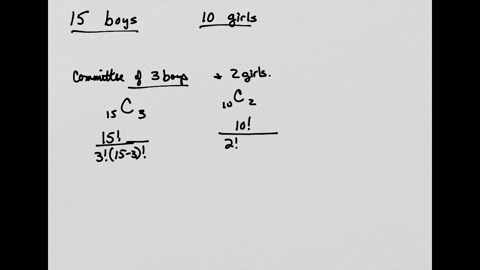 15 boys 10 girls
Committee of 3 boys + 2 girls.
15C3 10C2
15! 10!
3!(15-3)! 2!